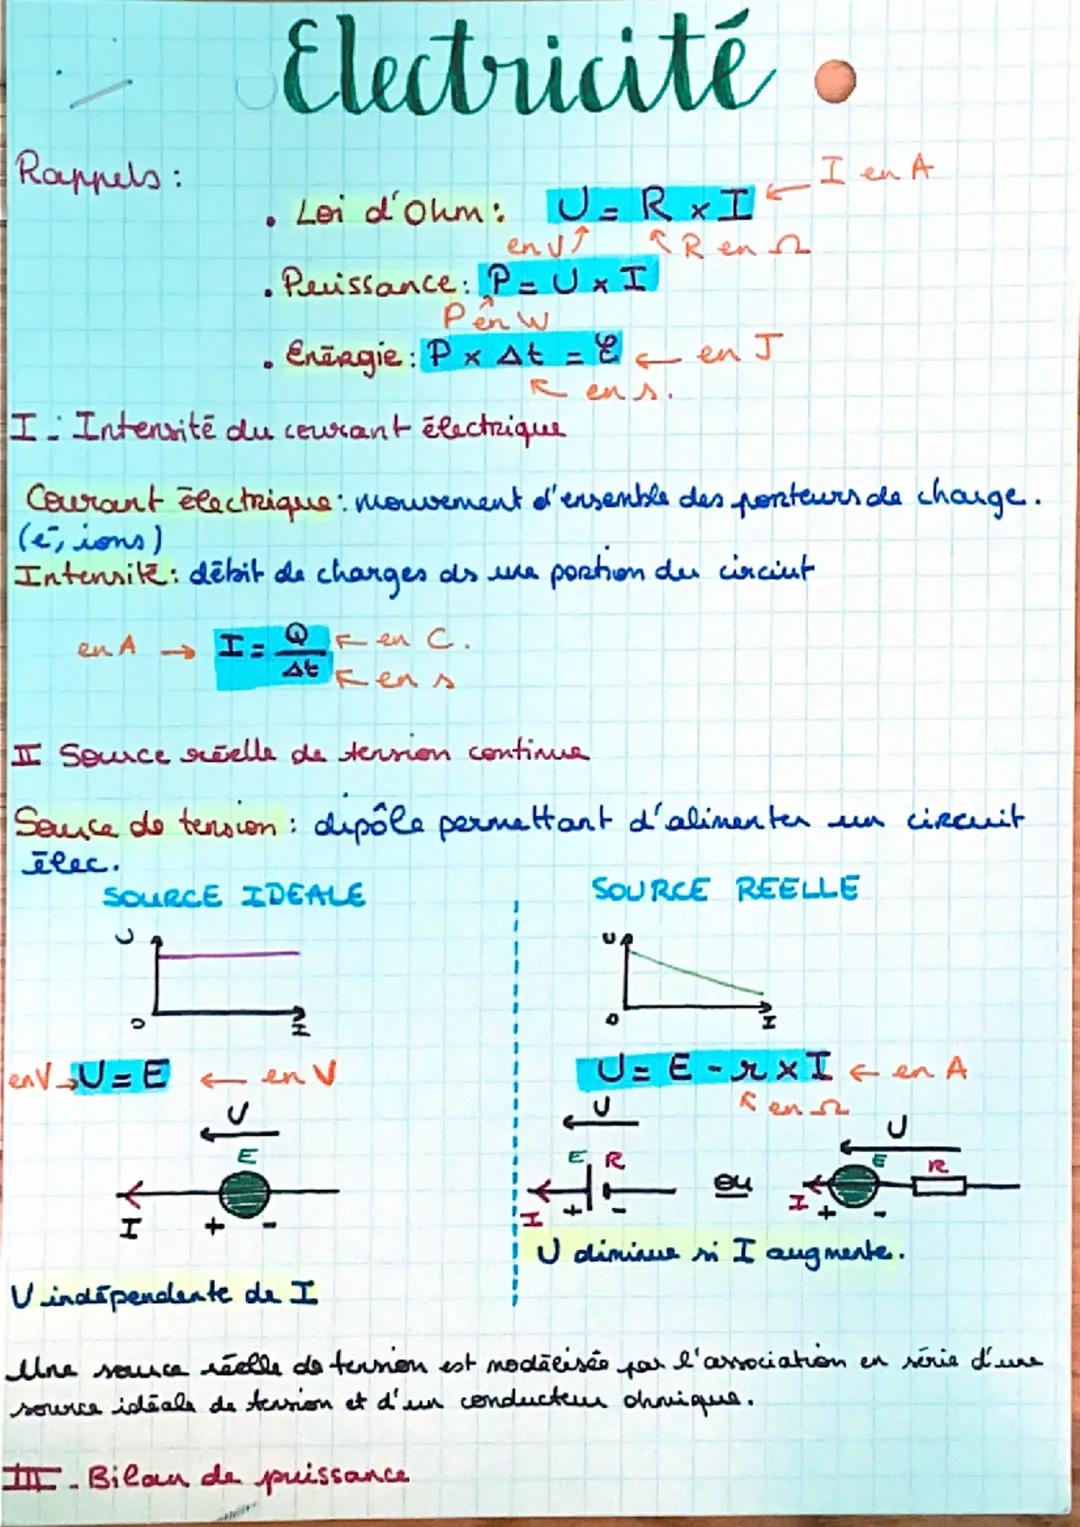 Electricité
Rappels :
• Loi d'Ohm : U = R × I ← I en A
en V ↑ ↖ R en Ω
• Puissance : P = U × I
P en W
• Enērgie : P × Δt = E ← en J
↖ en s.
I - Intensitē du courant ēlectrique
Courant ēlectrique : mouvement d'ensemble des porteurs de charge.
(e⁻, ions)
Intensitē : dēbit de charges ds une portion du circiut
en A → I = Q/Δt ← en C.
← en s
II Source rēelle de tension continue
Source de tension : dipôle permettant d'alimenter un circuit
ēlec.
SOURCE IDEALE
U
O
I
en V → U = E ← en V
U
E
I + -
U indēpendante de I
SOURCE REELLE
U
O
I
U = E - r × I ← en A
↖ en Ω
U
E R
I + -
ou
U
E R
I + -
U diminue si I augmente.
Une source rēelle de tension est modēlisēe par l'association en sērie d'une
source idēale de tension et d'un conducteur ohmique.
III - Bilan de puissance